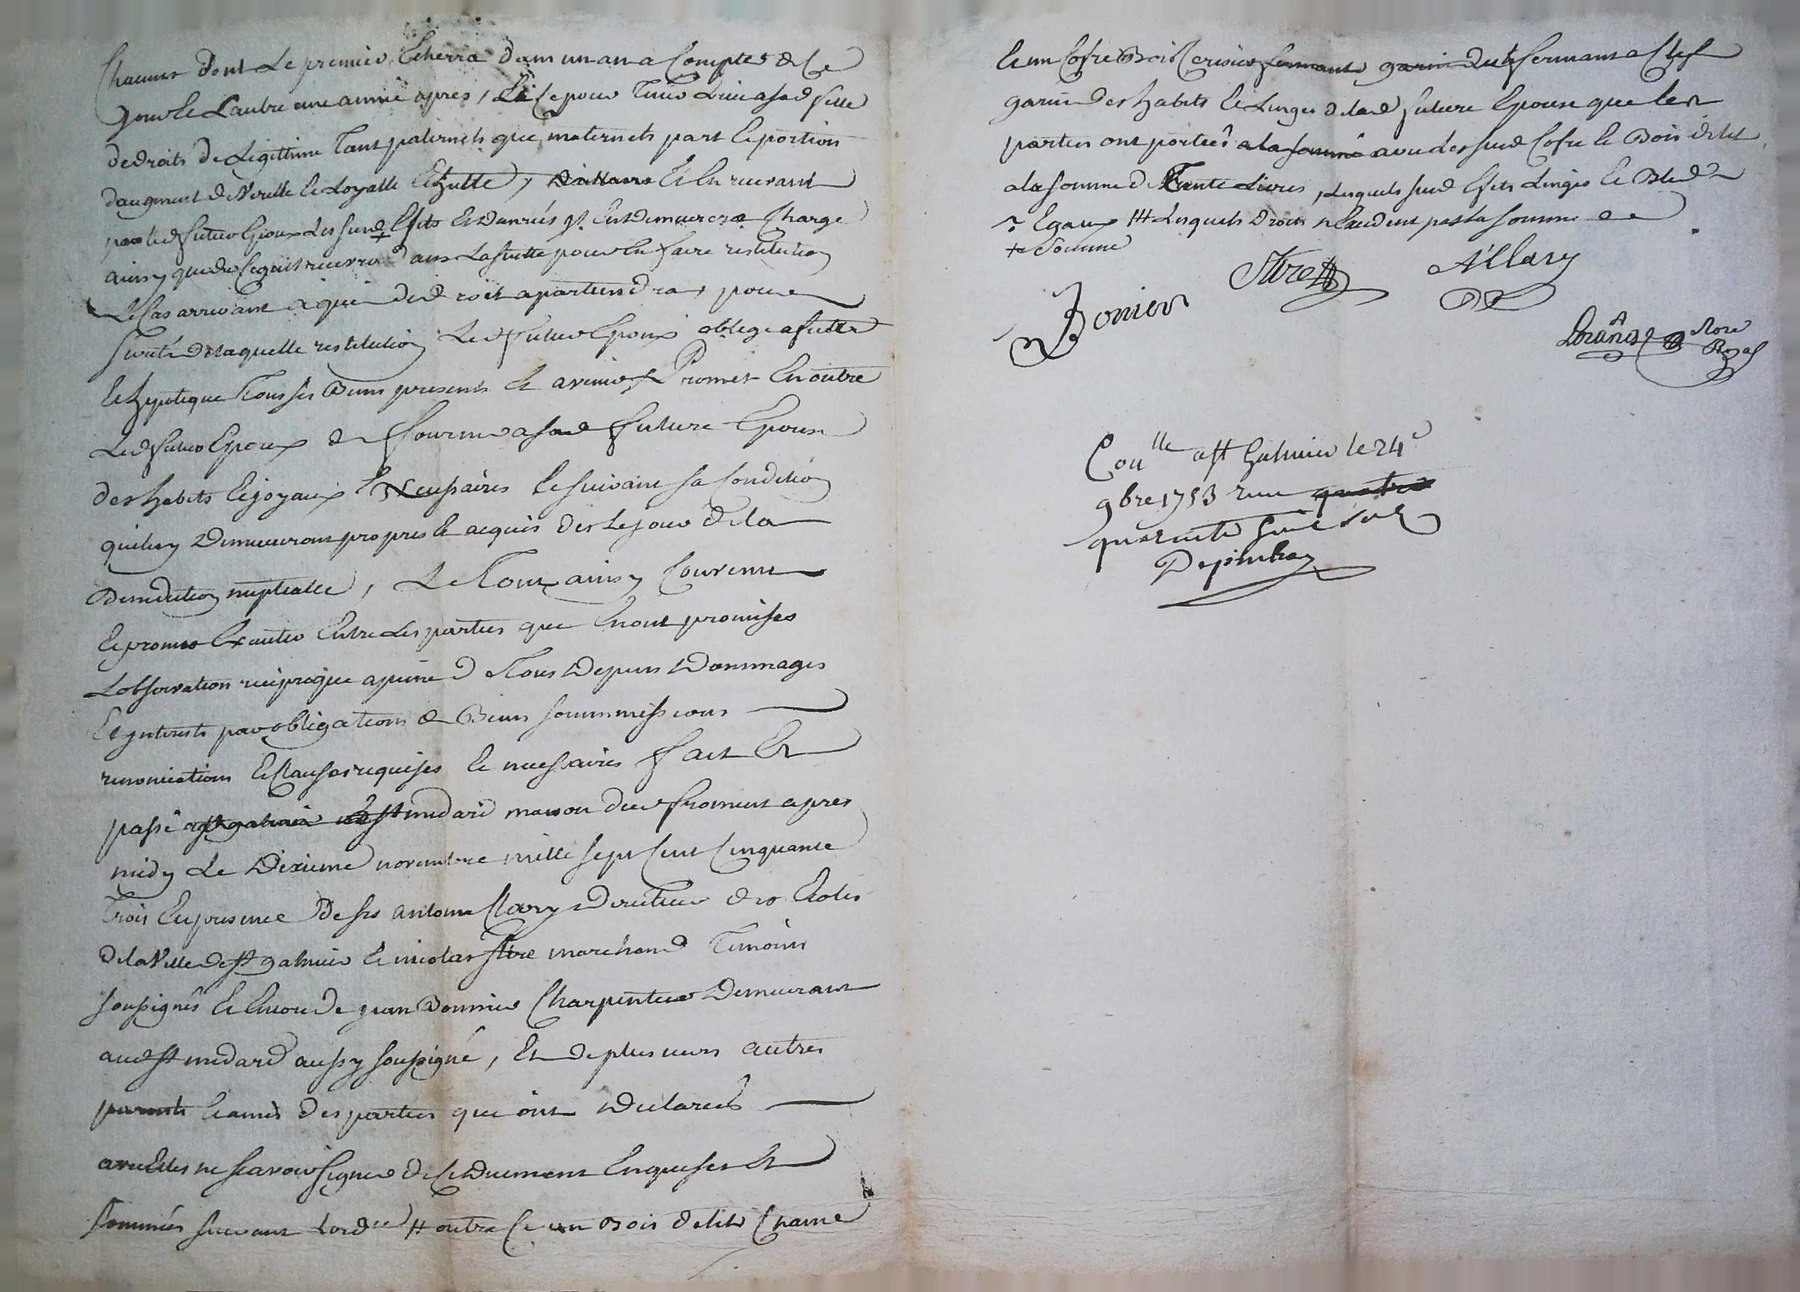 Chacune dont Le premier Echerra dam un an a Compter de Ce
jour Et L'autre une année apres, Et Ce pour tenir Lieu a sad fille
de droits de Legittime Tant paternels que maternels part Et portion
daugment de Virille Et Loyalle Echutte, Et En recevant
par led futur Epoux Les susd Effets Et danrées il En demeurera Chargé
ainsy que de Ce quil recevra dans La suitte pour En faire restitution
Le Cas arrivant a qui de droit apartiendra, pour
sureté de laquelle restitution Led futur Epoux oblige affecte
Et hypoteque Tous ses Biens presents Et avenir, Promet En outre
Led futur Epoux de fournir a sad future Epouse
des habits Et joyaux Necessaires Et suivant sa Condition
qui luy Demeureront propres Et acquis des Le jour de la
Benediction nuptialle, Le Tout ainsy Convenu
Et promis Executer Entre Les parties que En ont promises
L'observation reciproque a peine de Tous Depens Dommages
Et interests par obligations de Biens soummissions
renonciations Et Clauses requises Et necessaires fait Et
passé st medard maison dud froment apres
midy Le Dixieme novembre mille sept Cent Cinquante
Trois En presence De srs antoine Clary Directeur des Ecoles
de la Ville de st galmier Et nicolas Stre marchand Temoins
soussignés Et Encore de jean Bonnier Charpentier Demeurant
aud st medard aussy soussigné, Et de plusieurs autres
parents Et amis des parties qui ont Declarés
avec Elles ne scavoir signer de Ce Duement Enquises Et
sommées suivant Lordce # outre Ce un Bois de lit Chaine
Et un Cofre Bois Cerisier fermant garni dud fermant a Clef
garni des habits Et Linges de lad future Epouse que les
parties ont portées a la somme avec Les susd Cofre Et Bois de lit
a la somme de Trente Livres, Lesquels susd Effets Linges Et Bled
Egaux ### Lesquels Droits n'Excedent pas La somme de
+ somme
Bonier
Stre
A Clary
Cou lle a st Galmier le 24e
9bre 1753 recu quatre
quarente huit sols
Depinhac